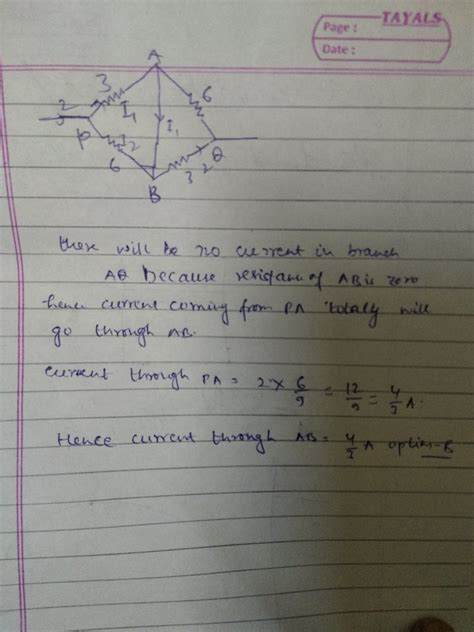 TAYALS
Page :
Date :
A
3
6
2
I1
I1
P
I2
Q
6
3
2
B
there will be no current in branch
AQ because resistance of AB is zero
hence current coming from PA totally will
go through AB.
current through PA = 2 × 6/9 = 12/9 = 4/3 A.
Hence current through AB = 4/3 A option-B